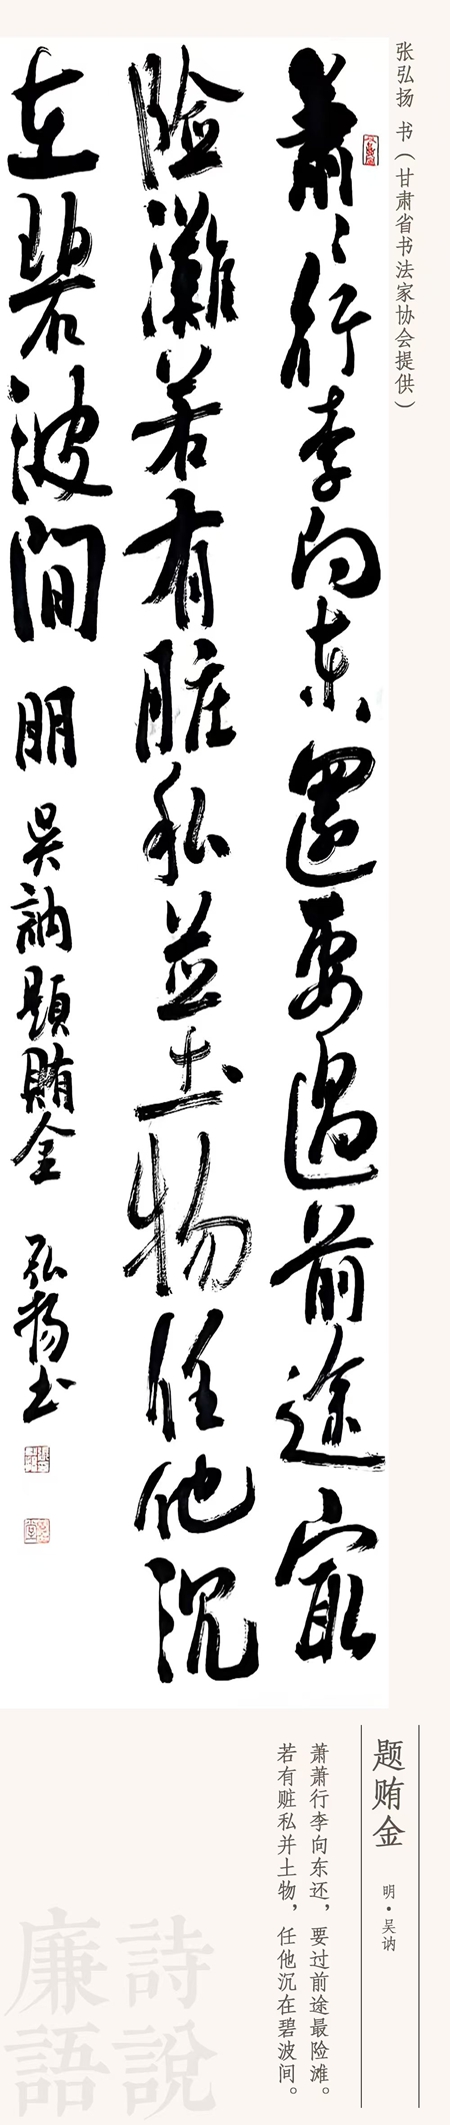 张弘扬 书（甘肃省书法家协会提供）
萧〻行李向东還要過前途最
险灘若有脏私並土物任他沉
在碧波间 明 吳訥題賄金 弘揚书
题贿金 明·吴讷
萧萧行李向东还，要过前途最险滩。
若有赃私并土物，任他沉在碧波间。
詩說
廉語